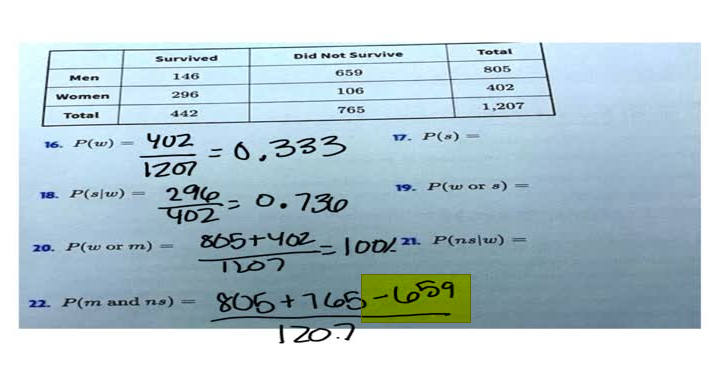 Survived Did Not Survive Total
Men 146 659 805
Women 296 106 402
Total 442 765 1,207
16. P(w) = 402/1207 = 0.333 17. P(s) =
18. P(s|w) = 296/402 = 0.736 19. P(w or s) =
20. P(w or m) = 805+402/1207 = 100% 21. P(ns|w) =
22. P(m and ns) = 805+765-659/1207